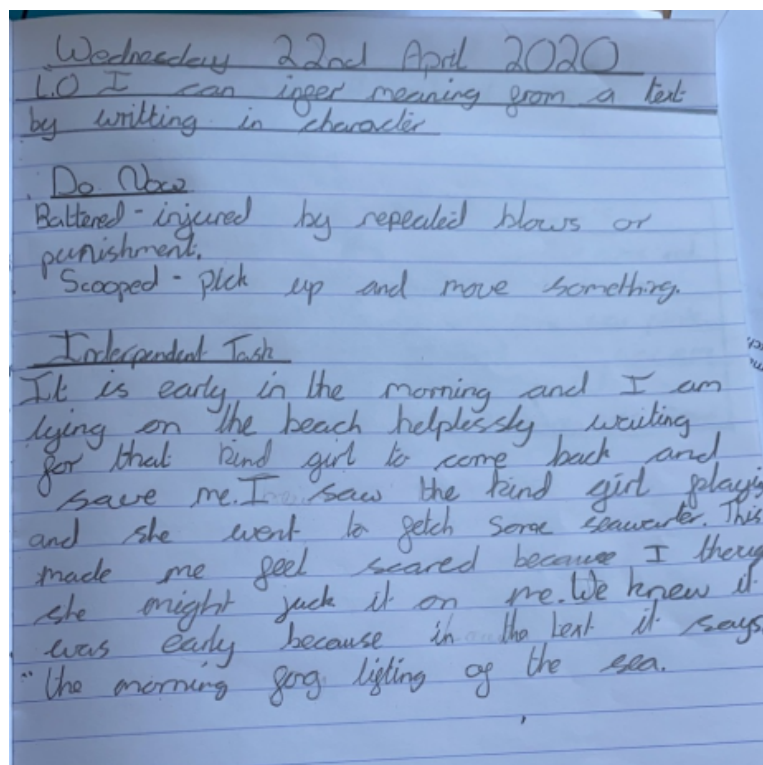 Wednesday 22nd April 2020
L.O I can infer meaning from a text
by writting in character
Do Now
Battered - injured by repeated blows or
punishment.
Scooped - pick up and move something.
Inderpendent Task
It is early in the morning and I am
lying on the beach helplessly waiting
for that kind girl to come back and
save me. I saw the kind girl playi
and she went to fetch some seawarter. This
made me feel scared because I thoug
she might juck it on me. We knew it
was early because in the text it says
"the morning fog lifting of the sea.